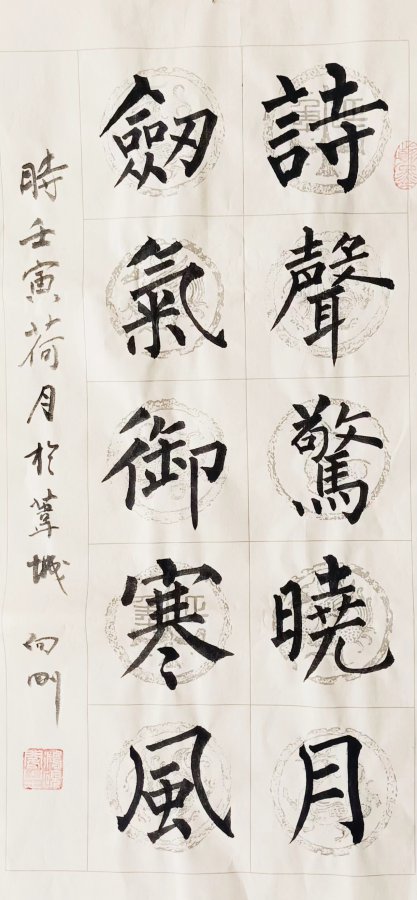 詩聲驚曉月
劒氣御寒風
時壬寅荷月於葦城 向剛